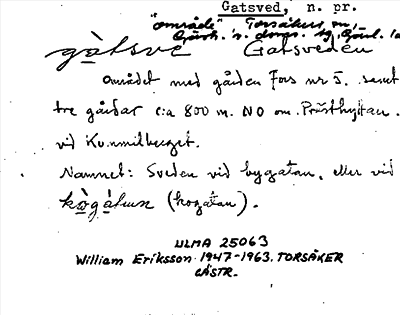 Gatsved, n. pr.
"område" Torsåkers sn,
gàtsve Gatsveden
Området med gården Fors nr 5. samt
tre gårdar c:a 800 m. NO om Prästhyttan.
vid Kummilberget.
Namnet: Sveden vid bygatan, eller vid
(kogatan).
ULMA 25063
William Eriksson 1947-1963. TORSÅKER
GÄSTR.